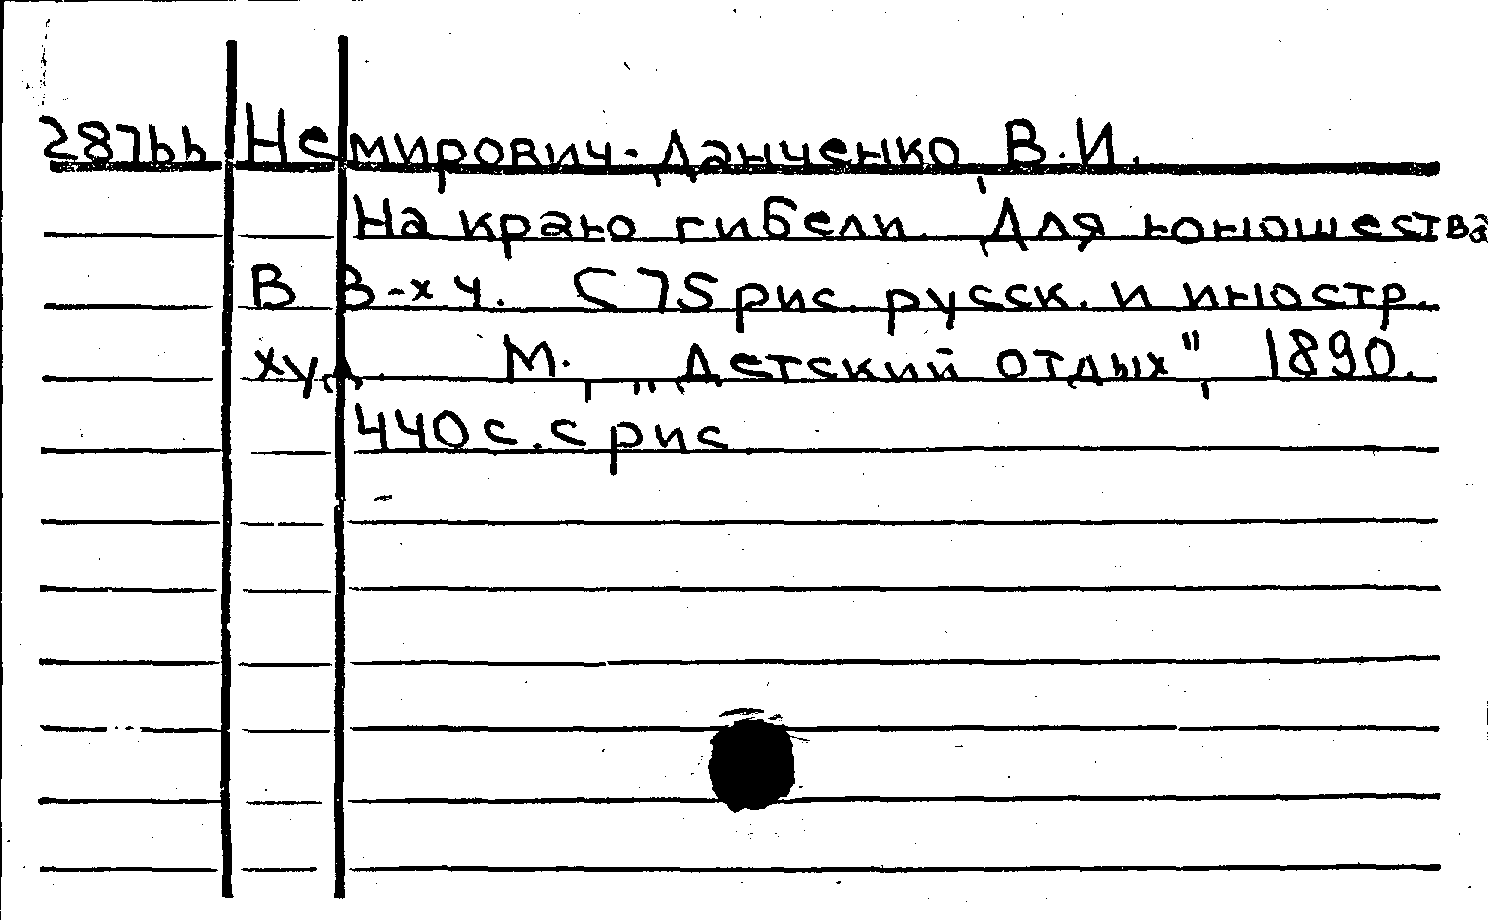 28766 Немирович-Данченко, В.И.
На краю гибели. Для юношества
В 3-х ч. С 75 рис. русск. и иностр.
худ. М., „Детский отдых", 1890.
440 с. с рис